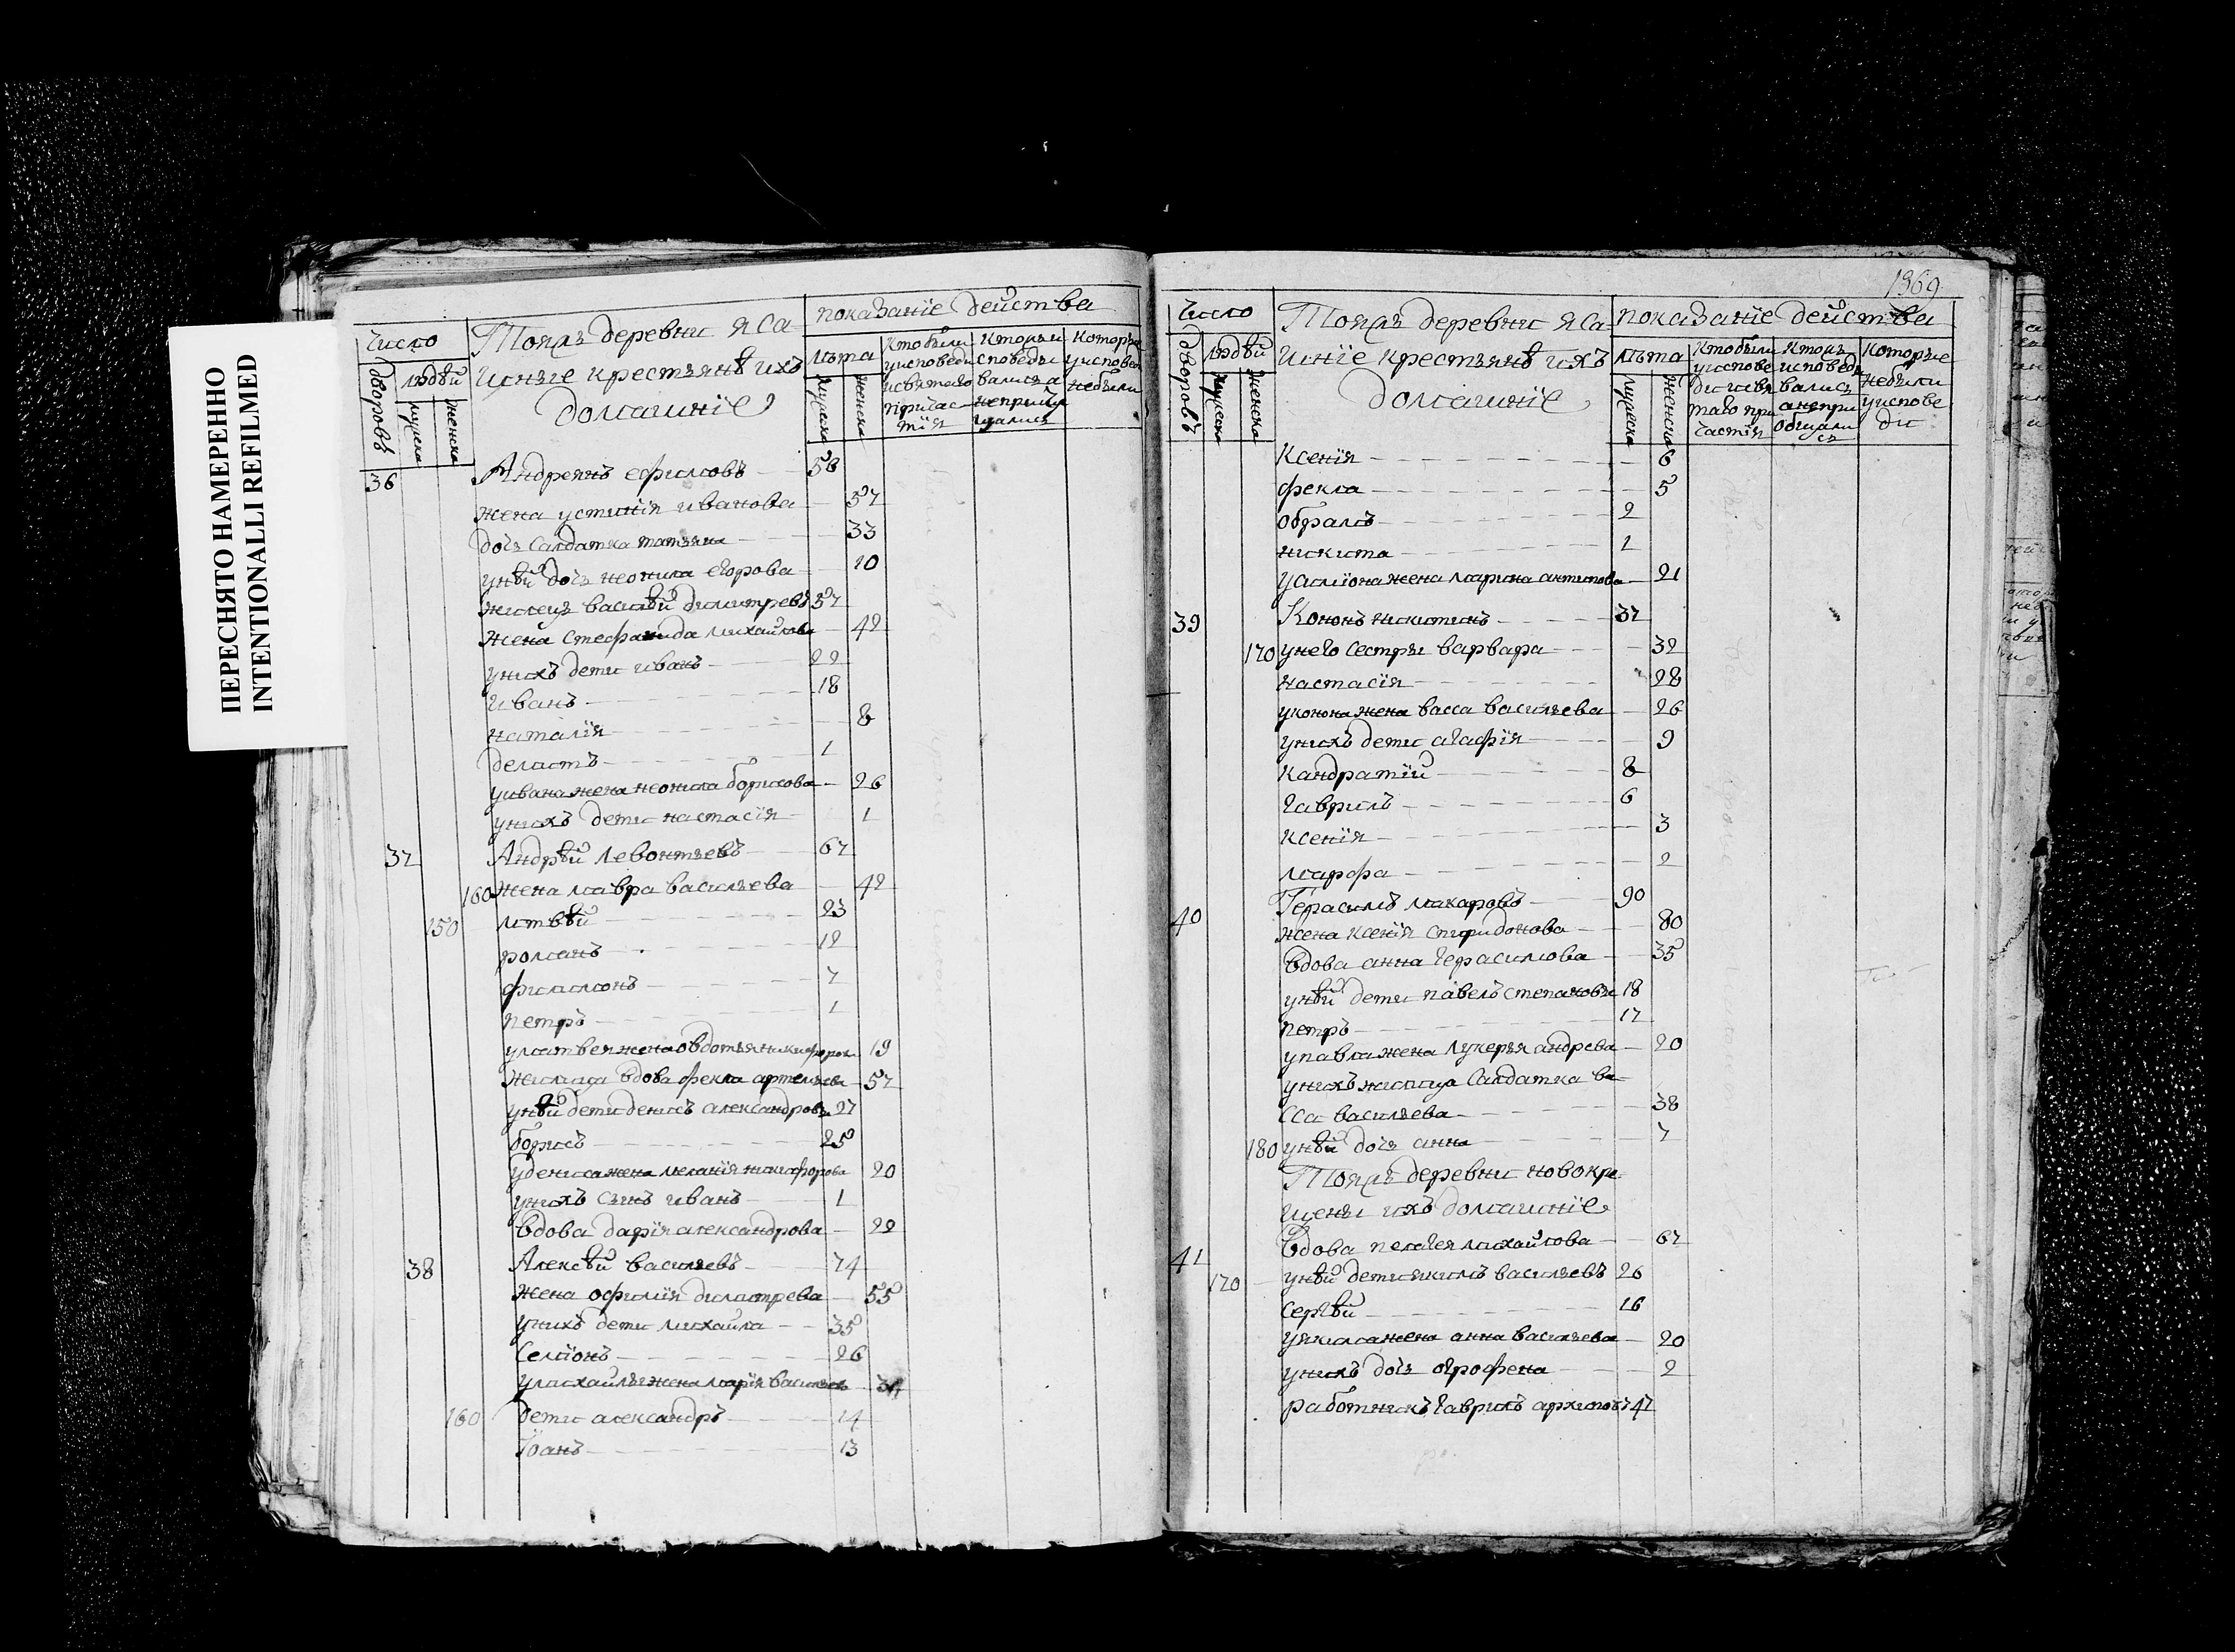 ПЕРЕСНЯТО НАМЕРЕННО
INTENTIONALLI REFILMED
Число
дворовъ
людѣй
мужеска
женска
Тояжъ деревни яса
шныѣ крестьянѣ ихъ
домашнїе
показанїе действа
лѣта
мужеска
женска
Кто были
уисповеди
исвятаго
причас
тїя
Которыи
споведы
валися а
неприча
щалися
Которые
уисповеди
небыли
36
Андреянъ ефимовъ 58
жена устинїя иванова 57
дочь салдатка татьяна 33
унѣй дочь неонила егорова 10
жилецъ василѣй димитревъ 57
жена стефанида михайлова 42
унихъ дети иванъ 22
иванъ 18
наталїя 8
дементъ 1
уивана жена неонила борисова 26
унихъ дети настасїя 1
37 Андрѣй левонтьевъ 67
160 жена мавра васильева 42
150 мтвѣй 23
романъ 12
филимонъ 7
петръ 1
уматвея жена овдотья никифорова 19
жилица вдова фекла артемьева 57
унѣй дети денисъ александровы 27
борисъ 25
удениса жена меланїя никифорова 20
унихъ сынъ иванъ 1
вдова дарїя александрова 22
38 Алексѣй василевъ 74
жена офимїя димитрева 55
унихъ дети михайла 35
семїонъ 26
умихайлы жена марїя васильева 34
160 дети александръ 14
їванъ 13
1369
Число
дворовъ
людѣй
мужеска
женска
Тояжъ деревни яса
шнїе крестьянѣ ихъ
домашнїе
показанїе действа
лѣта
мужеска
женска
Кто были
уиспове
ди исвя
таго при
частїя
Ктоиз
исповеды
валися
анепри
общали
съ
Которые
небыли
уиспове
ди
Ксенїя 6
фекла 5
обрамъ 2
никита 1
усемїона жена марина антипова 21
39 Кононъ никитинъ 37
170 унего сестры варвара 32
настасїя 28
уконона жена васса васильева 26
унихъ дети агафїя 9
кандратїй 8
гаврилъ 6
ксенїя 3
марфа 2
40 Герасимъ макаровъ 90
жена ксенїя спиридонова 80
вдова анна герасимова 35
унѣй дети павелъ степановы 18
петръ 17
упавла жена лукерья андрева 20
унихъ жилица салдатка ва
сса васильева 38
180 унѣй дочь анна 7
Тояжъ деревни новокре
щены ихъ домашнїе
41 Вдова пелагея михайлова 67
170 унѣй дети якимъ васильевъ 26
сергѣй 16
уякима жена анна васильева 20
унихъ дочь огрофена 2
работникъ гаврилъ архиповъ 47